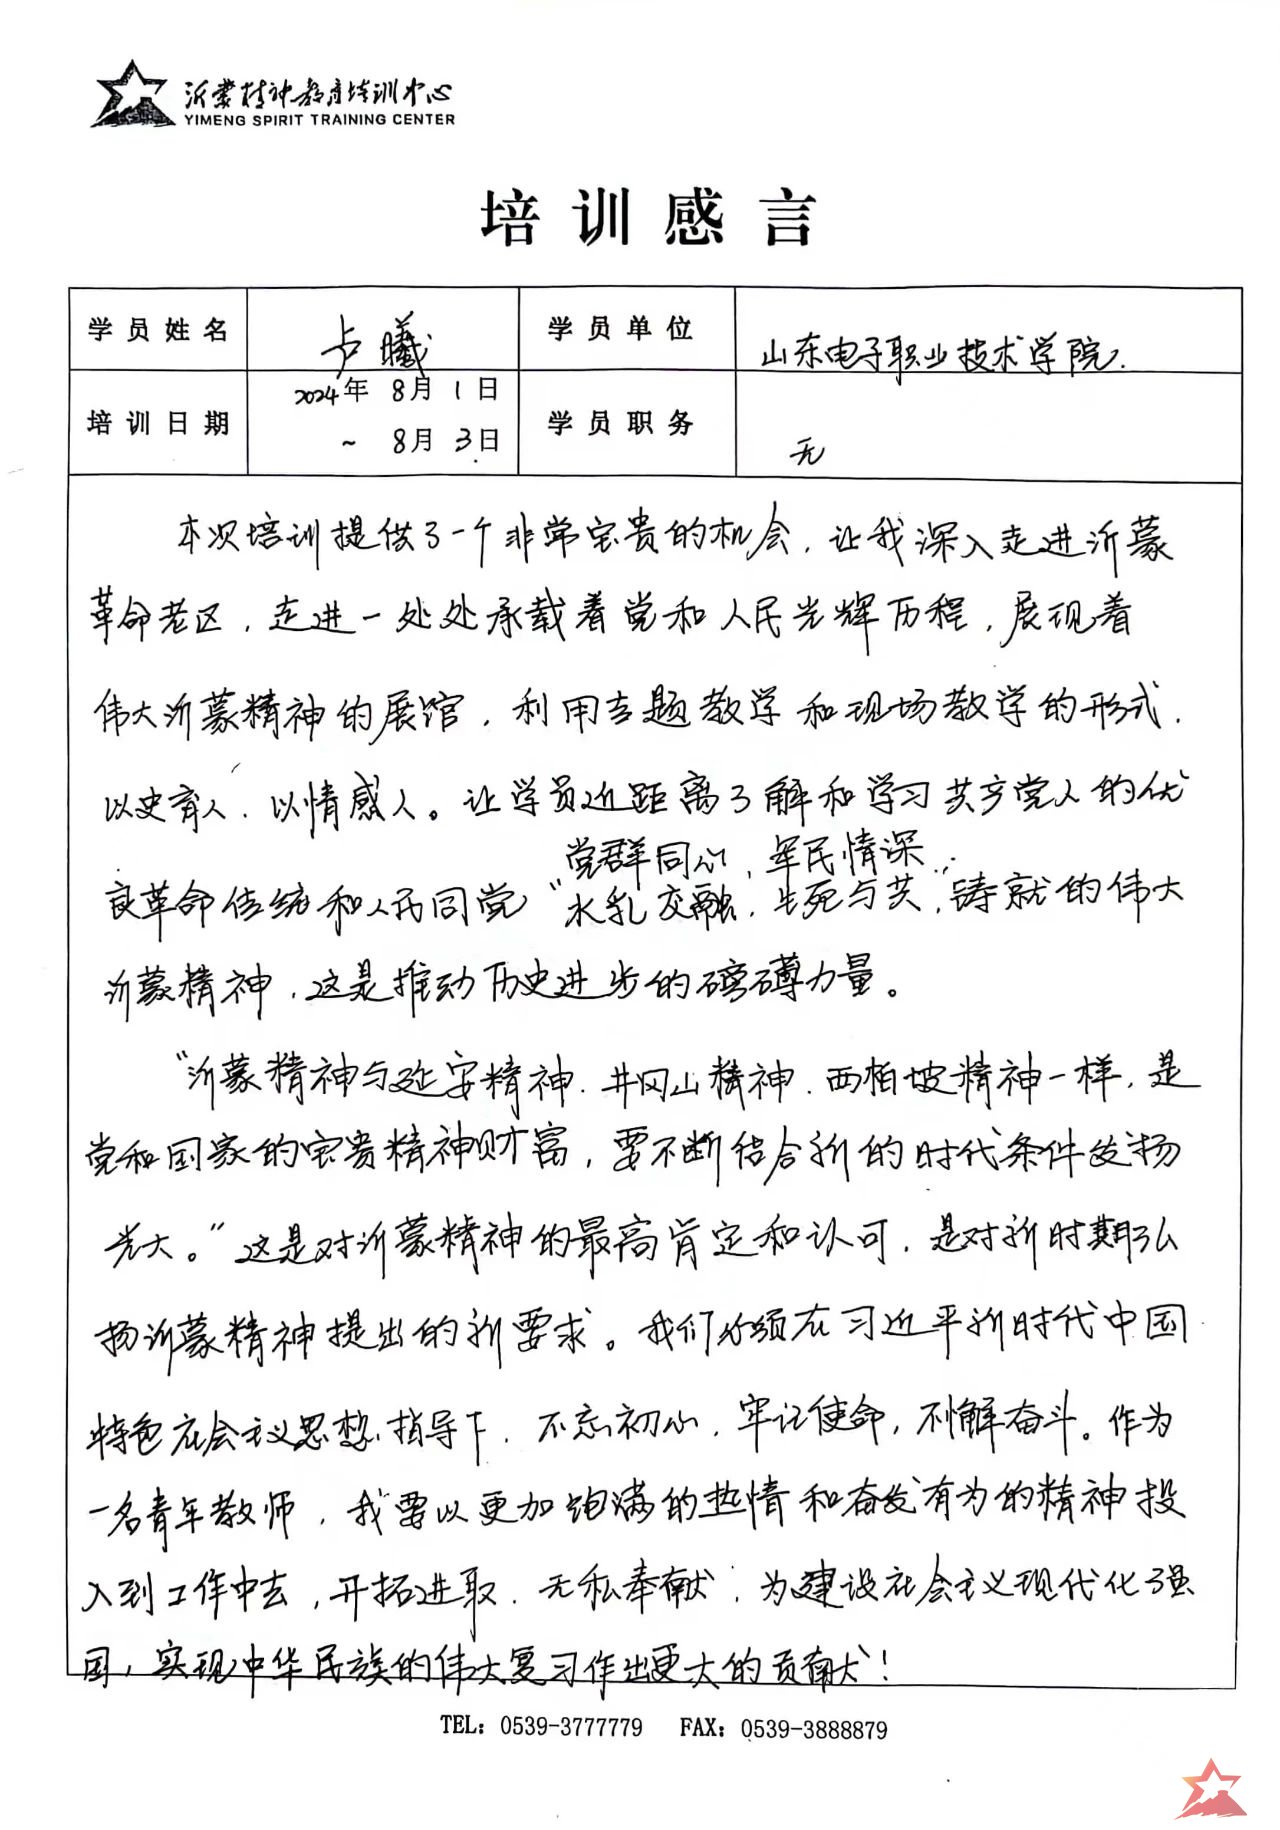 沂蒙精神教育培训中心
YIMENG SPIRIT TRAINING CENTER
培训感言
学员姓名 卢曦 学员单位 山东电子职业技术学院.
培训日期 2024年 8月 1日 ~ 8月 3日 学员职务 无
本次培训提供了一个非常宝贵的机会，让我深入走进沂蒙
革命老区，走进一处处承载着党和人民光辉历程，展现着
伟大沂蒙精神的展馆，利用专题教学和现场教学的形式，
以史育人、以情感人。让学员近距离了解和学习共产党人的优
党群同心，军民情深，
良革命传统和人民同党“水乳交融，生死与共”铸就的伟大
沂蒙精神，这是推动历史进步的磅礴力量。
“沂蒙精神与延安精神、井冈山精神、西柏坡精神一样，是
党和国家的宝贵精神财富，要不断结合新的时代条件发扬
光大。”这是对沂蒙精神的最高肯定和认可，是对新时期弘
扬沂蒙精神提出的新要求。我们必须在习近平新时代中国
特色社会主义思想指导下，不忘初心，牢记使命，不懈奋斗。作为
一名青年教师，我要以更加饱满的热情和奋发有为的精神投
入到工作中去，开拓进取、无私奉献，为建设社会主义现代化强
国，实现中华民族的伟大复习作出更大的贡献！
TEL：0539-3777779 FAX：0539-3888879